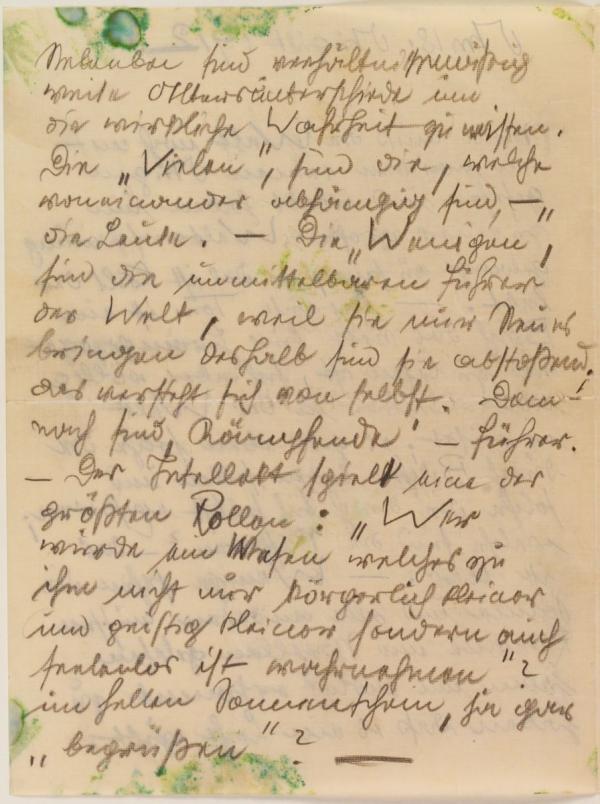 Nebenbei sind verhältnissmässig
weite Altersunterschiede um
die wirkliche Wahrheit zu wissen.
Die „Vielen", sind die, welche
voneinander abhängig sind, — „
die Leute. — Die „Wenigen,
sind die unmittelbaren Führer
der Welt, weil sie nur Neues
bringen deshalb sind sie abstoßend,
das versteht sich von selbst. Dem-
nach sind, Kämpfende' — Führer.
— Der Intellekt spielt eine der
größten Rollen: „Wer
würde ein Wesen welches zu
ihm nicht nur körperlich kleiner
und geistig kleiner sondern auch
seelenlos ist wahrnehmen"?
im hellen Sonnenschein, ja gar
„begrüßen"?